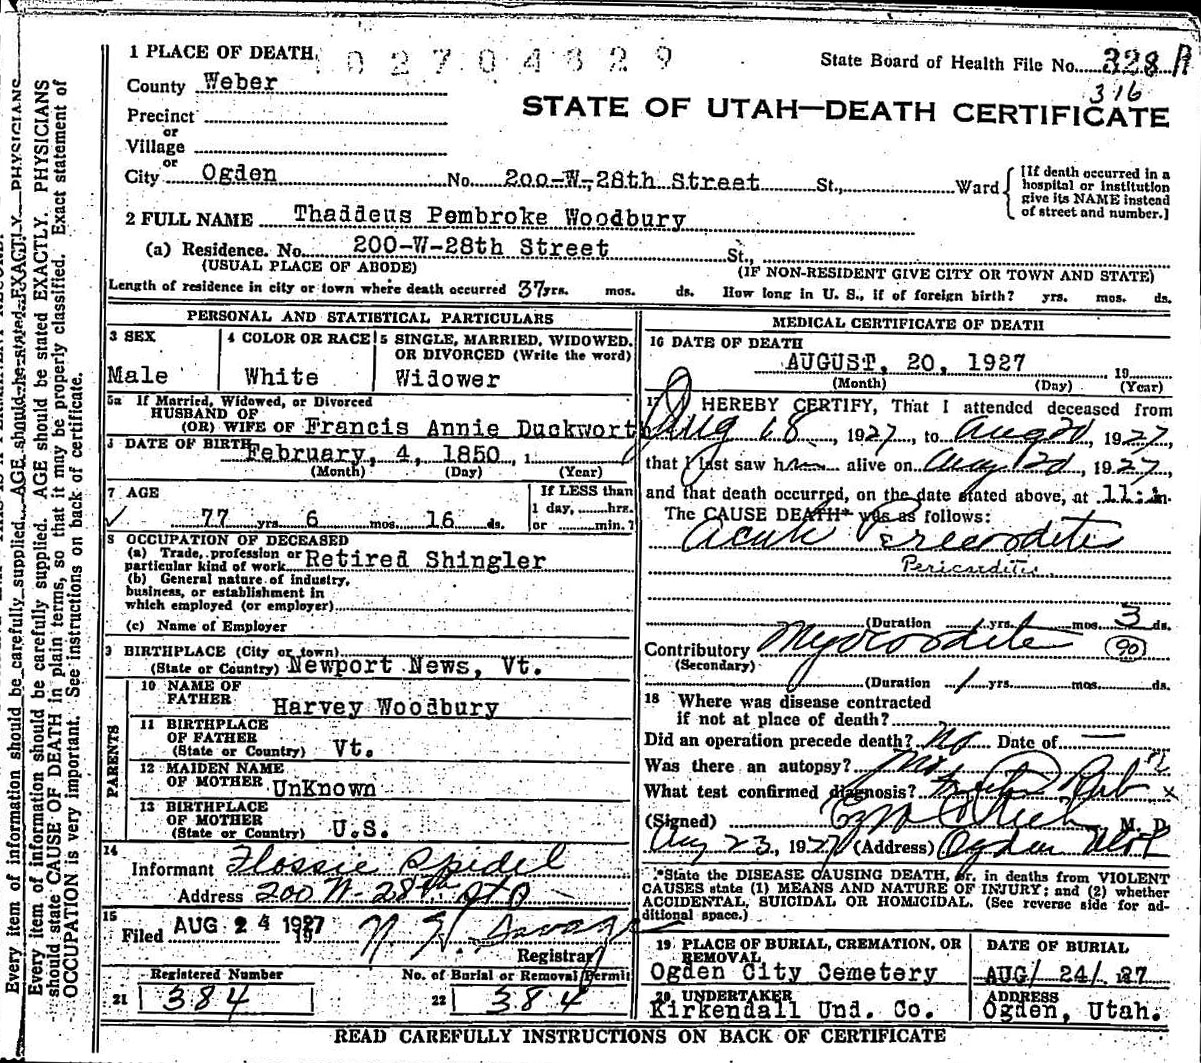 1 PLACE OF DEATH
02704829
State Board of Health File No. 328 A
County Weber
316
STATE OF UTAH—DEATH CERTIFICATE
Precinct
or
Village
or
City Ogden No. 200-W-28th Street St., Ward
[If death occurred in a hospital or institution give its NAME instead of street and number.]
2 FULL NAME Thaddeus Pembroke Woodbury
(a) Residence. No. 200-W-28th Street St.,
(USUAL PLACE OF ABODE) (IF NON-RESIDENT GIVE CITY OR TOWN AND STATE)
Length of residence in city or town where death occurred 37 yrs. mos. ds. How long in U. S., if of foreign birth? yrs. mos. ds.
PERSONAL AND STATISTICAL PARTICULARS
3 SEX
Male
4 COLOR OR RACE
White
5 SINGLE, MARRIED, WIDOWED, OR DIVORCED (Write the word)
Widower
5a If Married, Widowed, or Divorced
HUSBAND OF
(OR) WIFE OF Francis Annie Duckworth
DATE OF BIRTH February, 4, 1850, 1
(Month) (Day) (Year)
7 AGE
77 yrs. 6 mos. 16 ds.
If LESS than
1 day, hrs.
or min.?
8 OCCUPATION OF DECEASED
(a) Trade, profession or
particular kind of work Retired Shingler
(b) General nature of industry,
business, or establishment in
which employed (or employer)
(c) Name of Employer
9 BIRTHPLACE (City or town)
(State or Country) Newport News, Vt.
PARENTS
10 NAME OF
FATHER Harvey Woodbury
11 BIRTHPLACE
OF FATHER
(State or Country) Vt.
12 MAIDEN NAME
OF MOTHER UnKnown
13 BIRTHPLACE
OF MOTHER
(State or Country) U.S.
14
Informant Flossie Spidel
Address 200 W-28th St
15
Filed AUG 24 1927 19
Registrar
Registered Number
21 384
No. of Burial or Removal Permit
22 384
MEDICAL CERTIFICATE OF DEATH
16 DATE OF DEATH
AUGUST, 20, 1927 19
(Month) (Day) (Year)
17 I HEREBY CERTIFY, That I attended deceased from
Aug 18, 1927, to Aug 20, 1927,
that I last saw him alive on Aug 20, 1927,
and that death occurred, on the date stated above, at 11: m.
The CAUSE DEATH* was as follows:
Acute Pericarditis
Pericarditis
(Duration yrs. mos. 3 ds.
Contributory Myocardite 90
(Secondary)
(Duration 1 yrs. mos. ds.
18 Where was disease contracted
if not at place of death?
Did an operation precede death? No Date of —
Was there an autopsy? No
What test confirmed diagnosis?
(Signed) M. D.
Aug 23, 1927 (Address) Ogden Utah
*State the DISEASE CAUSING DEATH, or, in deaths from VIOLENT
CAUSES state (1) MEANS AND NATURE OF INJURY; and (2) whether
ACCIDENTAL, SUICIDAL OR HOMICIDAL. (See reverse side for ad-
ditional space.)
19 PLACE OF BURIAL, CREMATION, OR
REMOVAL
Ogden City Cemetery
DATE OF BURIAL
AUG/ 24/ 27
20 UNDERTAKER
Kirkendall Und. Co.
ADDRESS
Ogden, Utah.
READ CAREFULLY INSTRUCTIONS ON BACK OF CERTIFICATE
Every item of information should be carefully supplied. AGE should be stated EXACTLY. PHYSICIANS
Every item of information should be carefully supplied. AGE should be stated EXACTLY. PHYSICIANS
should state CAUSE OF DEATH in plain terms, so that it may be properly classified. Exact statement of
OCCUPATION is very important. See instructions on back of certificate.